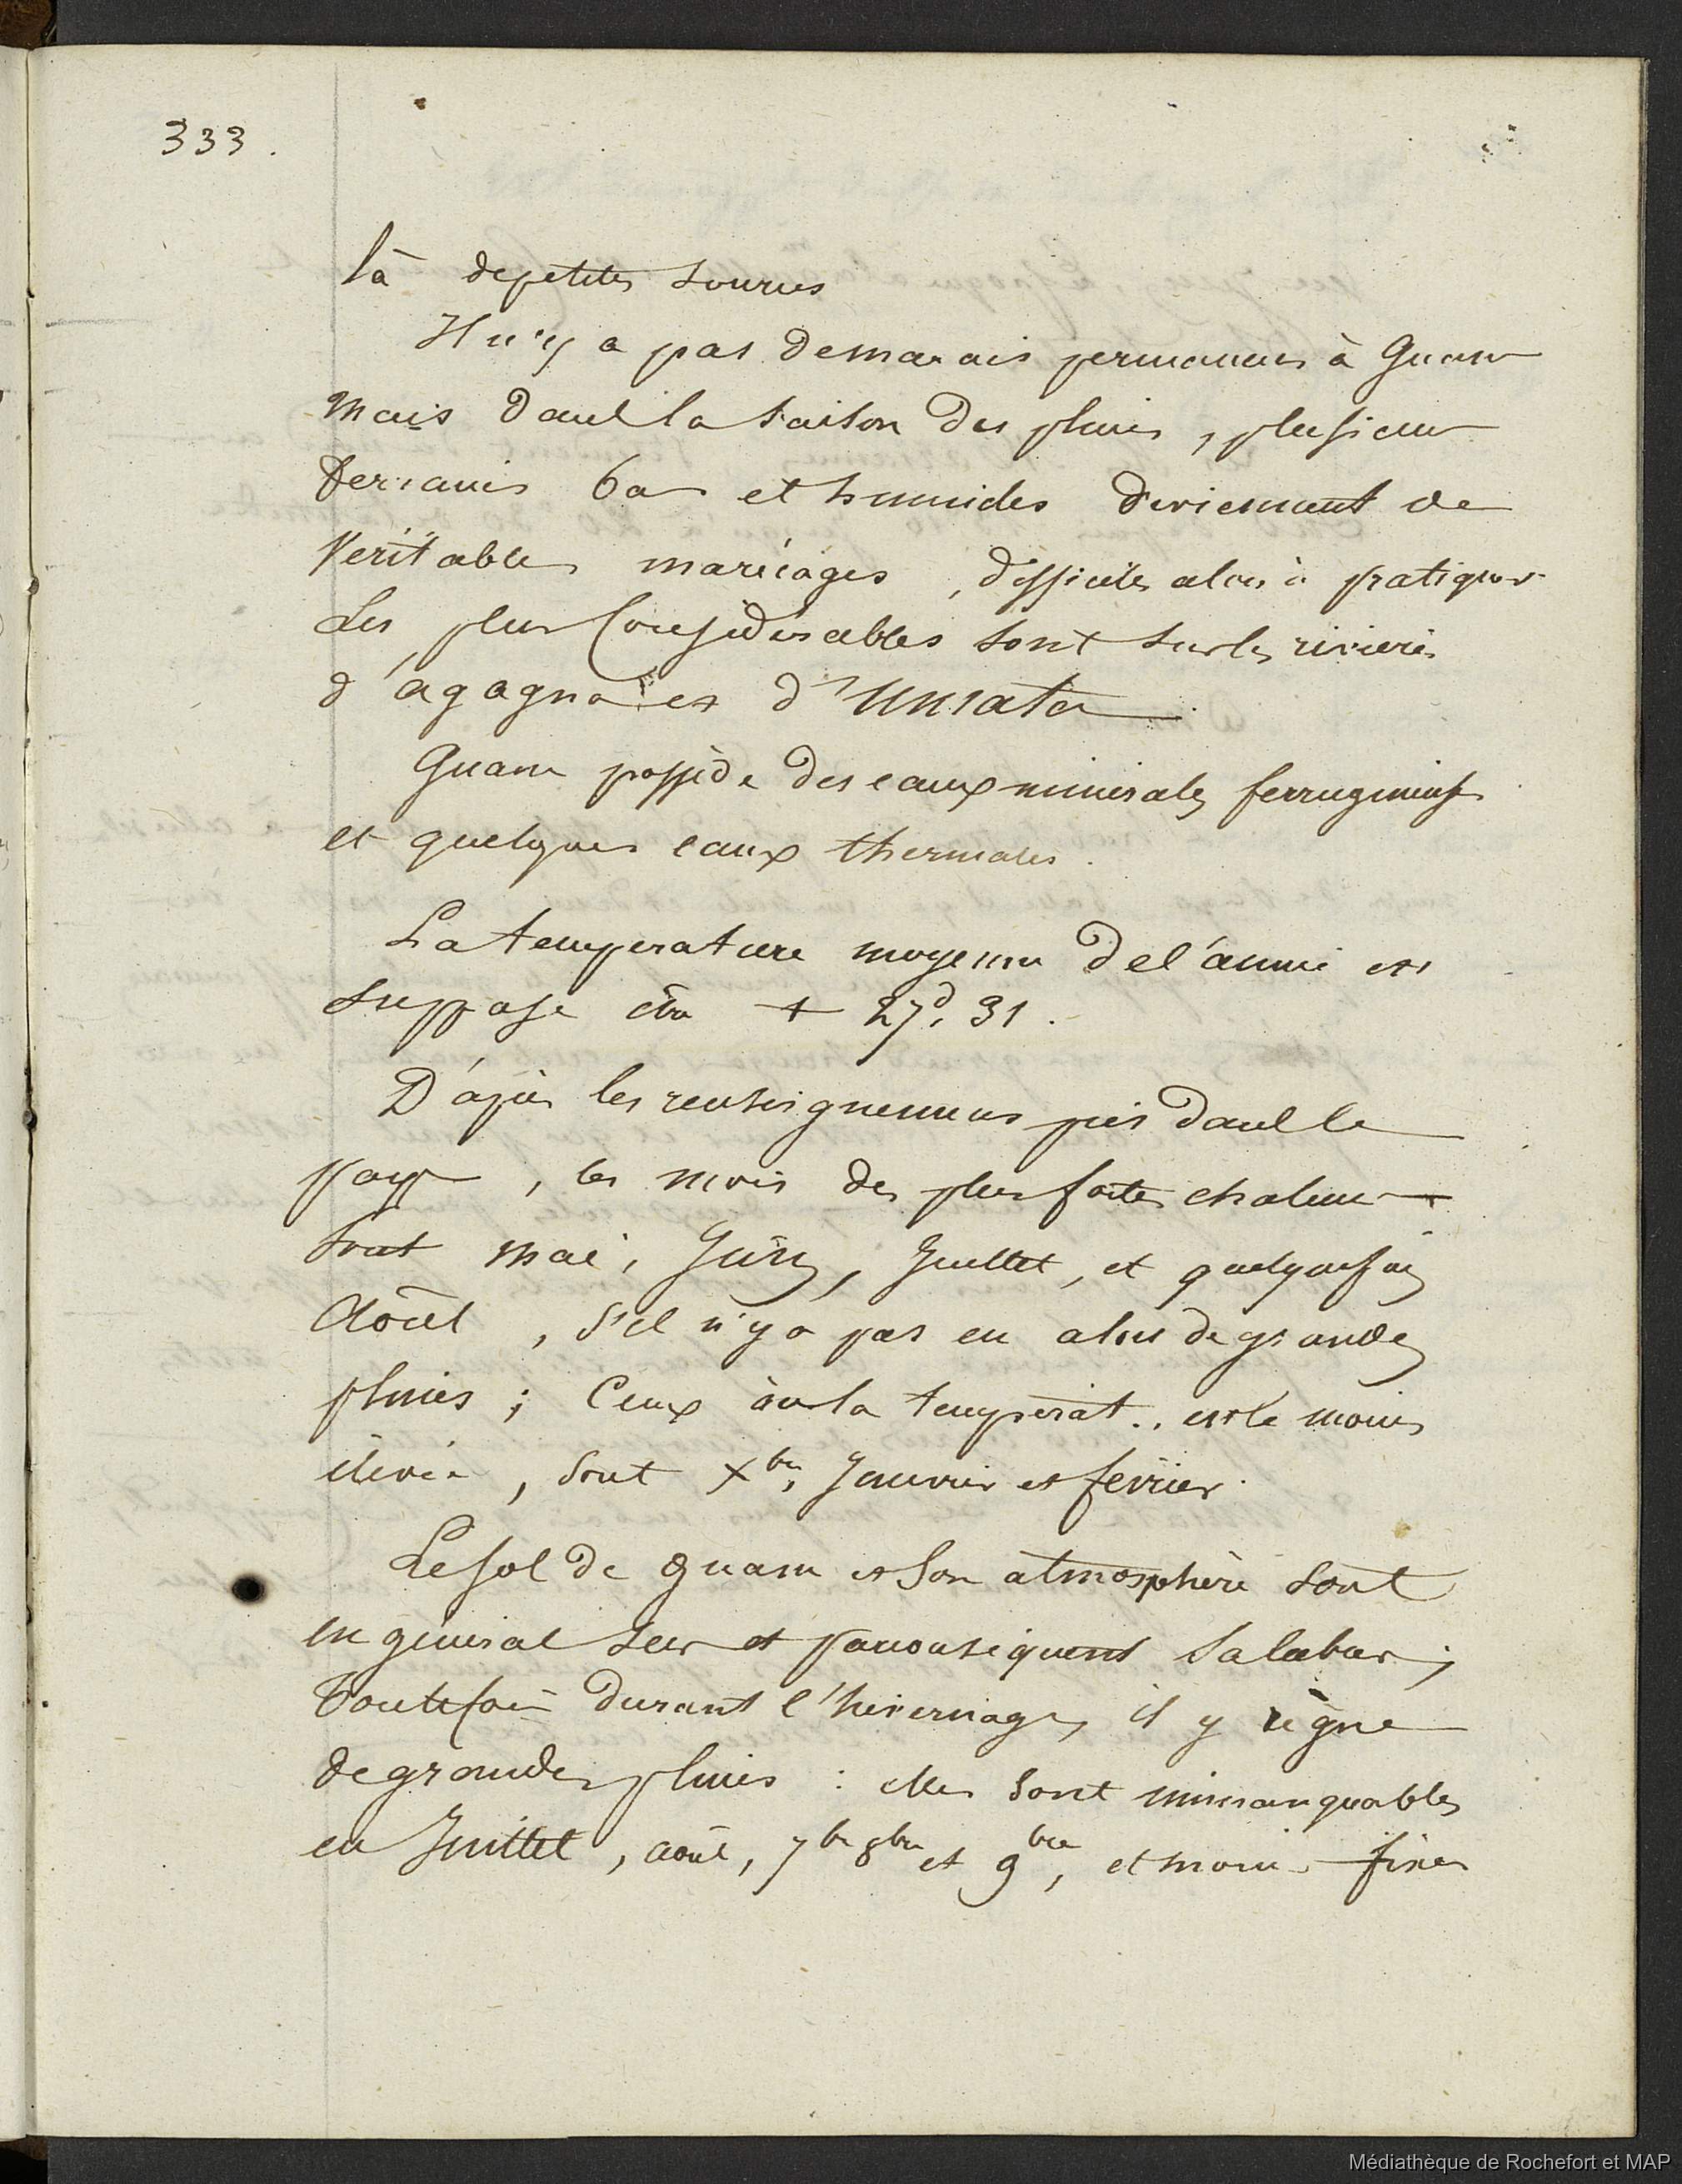 333.
là de petites sources
Il n'y a pas de marais permanens à Guam
mais dans la saison des pluies, plusieurs
terrains bas et humides deviennent de
veritables marécages, difficiles alors à pratiquer
Les plus Considérables sont sur les rivieres
d'agagna et d'Umata
Guam possède des eaux minérales ferrugineuses
et quelques eaux thermales.
La temperature moyenne de l'année est
supposée être + 27d, 31.
D'après les renseignemens pris dans le
pays, les mois des plus fortes chaleurs
sont mai, Juin, Juillet, et quelquefois
Août, s'il n'y a pas eu alors de grandes
pluies; Ceux où la températ.. est le moins
élevée, sont Xbre, Janvier et fevrier.
Le sol de Guam et son atmosphère sont
en général secs et par conséquent salubres;
Toutefois durant l'hivernage, il y règne
de grandes pluies: elles sont immanquables
en Juillet, août, 7bre 8bre et 9bre, et moins fixes
Médiathèque de Rochefort et MAP